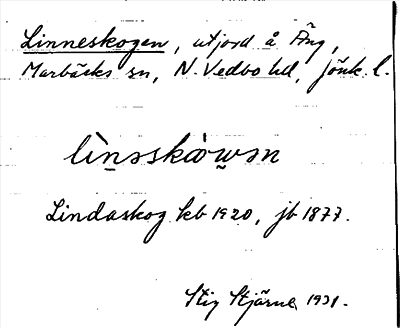 Linneskogen, utjord å Äng,
Marbäcks sn, N. Vedbo hd, Jönk. l.
lìn̠əskòw̬ən
Lindaskog kb 1920, jb 1877.
Stig Stjärne 1931.